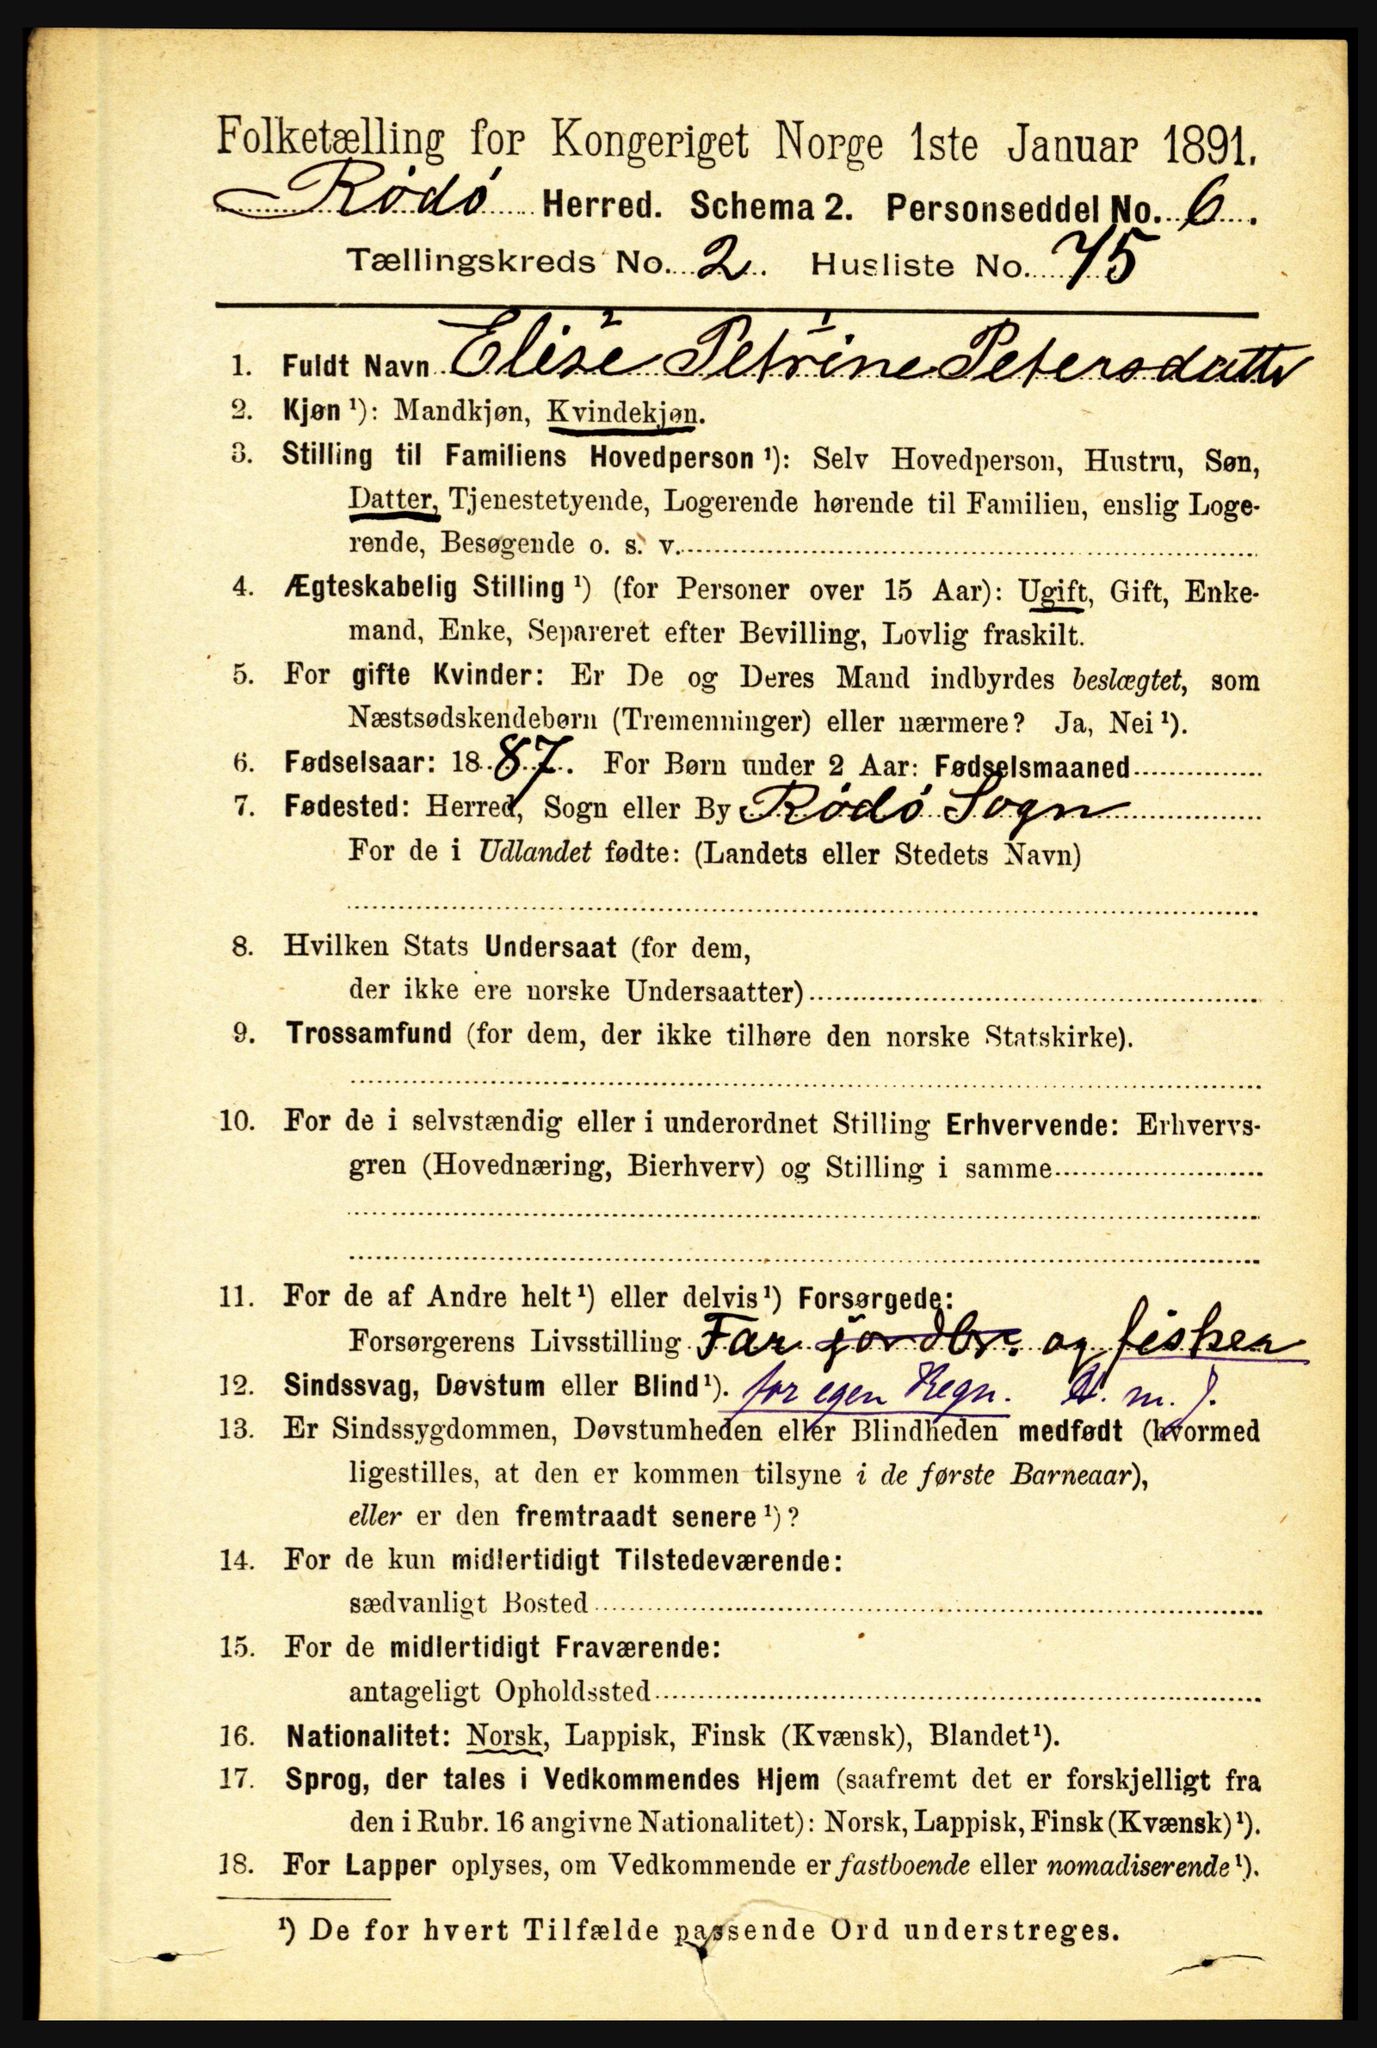 Folketælling for Kongeriget Norge 1ste Januar 1891.
Rødø Herred. Schema 2. Personseddel No. 6.
Tællingskreds No. 2. Husliste No. 75
2 1
1. Fuldt Navn Elise Petrine Petersdatter
2. Kjøn ¹): Mandkjøn, Kvindekjøn.
3. Stilling til Familiens Hovedperson ¹): Selv Hovedperson, Hustru, Søn,
Datter, Tjenestetyende, Logerende hørende til Familien, enslig Loge-
rende, Besøgende o. s. v.
4. Ægteskabelig Stilling ¹) (for Personer over 15 Aar): Ugift, Gift, Enke-
mand, Enke, Separeret efter Bevilling, Lovlig fraskilt.
5. For gifte Kvinder: Er De og Deres Mand indbyrdes beslægtet, som
Næstsødskendebørn (Tremenninger) eller nærmere? Ja, Nei ¹).
6. Fødselsaar: 1887. For Børn under 2 Aar: Fødselsmaaned
7. Fødested: Herred, Sogn eller By Rødø Sogn
For de i Udlandet fødte: (Landets eller Stedets Navn)
8. Hvilken Stats Undersaat (for dem,
der ikke ere norske Undersaatter)
9. Trossamfund (for dem, der ikke tilhøre den norske Statskirke).
10. For de i selvstændig eller i underordnet Stilling Erhvervende: Erhvervs-
gren (Hovednæring, Bierhverv) og Stilling i samme
11. For de af Andre helt ¹) eller delvis ¹) Forsørgede:
Forsørgerens Livsstilling Far jordbr. og fisker
12. Sindssvag, Døvstum eller Blind ¹). for egen Regn.
13. Er Sindssygdommen, Døvstumheden eller Blindheden medfødt (hvormed
ligestilles, at den er kommen tilsyne i de første Barneaar),
eller er den fremtraadt senere ¹)?
14. For de kun midlertidigt Tilstedeværende:
sædvanligt Bosted
15. For de midlertidigt Fraværende:
antageligt Opholdssted
16. Nationalitet: Norsk, Lappisk, Finsk (Kvænsk), Blandet ¹).
17. Sprog, der tales i Vedkommendes Hjem (saafremt det er forskjelligt fra
den i Rubr. 16 angivne Nationalitet): Norsk, Lappisk, Finsk (Kvænsk) ¹).
18. For Lapper oplyses, om Vedkommende er fastboende eller nomadiserende ¹).
¹) De for hvert Tilfælde passende Ord understreges.